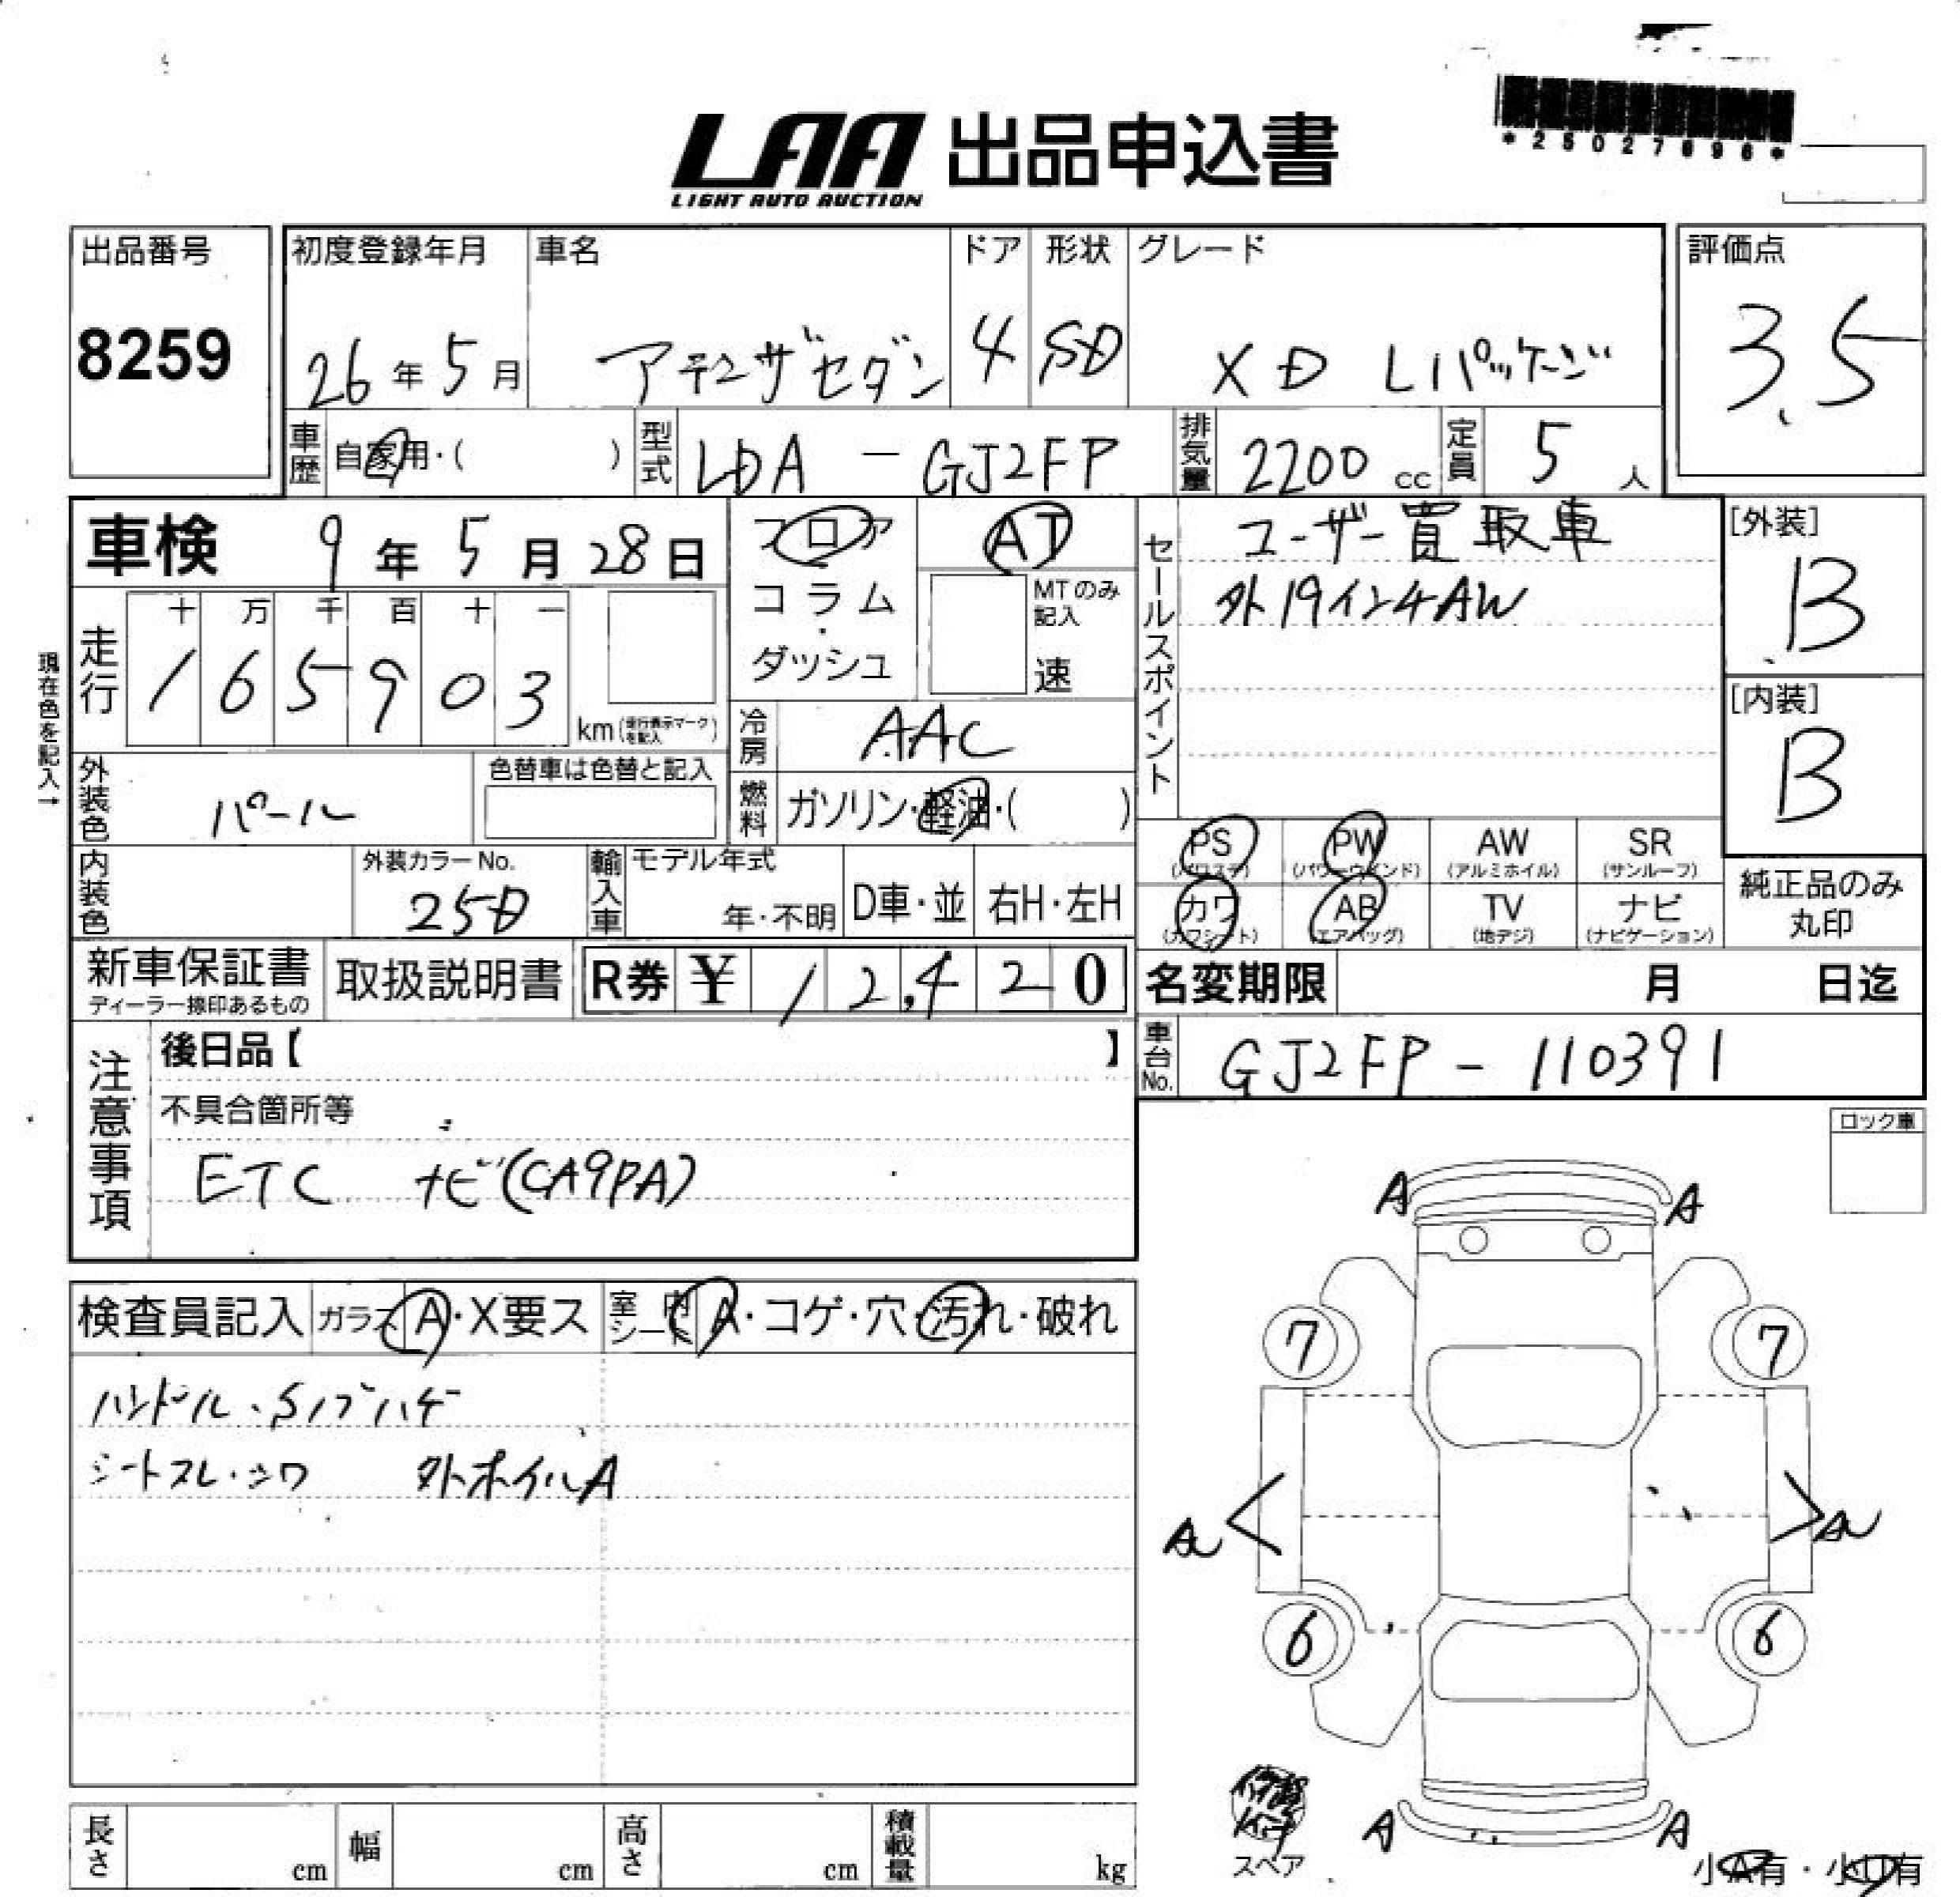 *25027696*
LAA 出品申込書
LIGHT AUTO AUCTION
出品番号
8259
初度登録年月
26年5月
車名
アテンザセダン
ドア
4
形状
SD
グレード
XD Lパッケージ
評価点
3.5
車歴 自家用・( )
型式 LDA - GJ2FP
排気量 2200 cc
定員 5 人
車検 9年5月28日
フロア
コラム
・
ダッシュ
AT
MTのみ
記入
速
セールスポイント
ユーザー買取車
外19インチAW
[外装]
B
[内装]
B
現在色を記入→
走行
十 万 千 百 十 一
1 6 5 9 0 3
km(走行表示マークを記入)
冷房 AAC
燃料 ガソリン・軽油・( )
外装色 パール
色替車は色替と記入
内装色
外装カラーNo.
25D
輸入車 モデル年式
年・不明
D車・並
右H・左H
PS (パワステ)
PW (パワーウインド)
AW (アルミホイル)
SR (サンルーフ)
カワ (カワシート)
AB (エアバッグ)
TV (地デジ)
ナビ (ナビゲーション)
純正品のみ
丸印
新車保証書
ディーラー捺印あるもの
取扱説明書
R券 ¥ 12,420
名変期限 月 日迄
車台No. GJ2FP - 110391
注意事項
後日品【 】
不具合箇所等
ETC ナビ(CA9PA)
ロック車
検査員記入 ガラス A・X要ス 室内シート A・コゲ・穴・汚れ・破れ
ハンドル・Sノブハゲ
シートスレ・シワ 外ホイルA
A A
7 7
A A
6 6
A A
スペア
小A有・小U有
長さ cm 幅 cm 高さ cm 積載量 kg